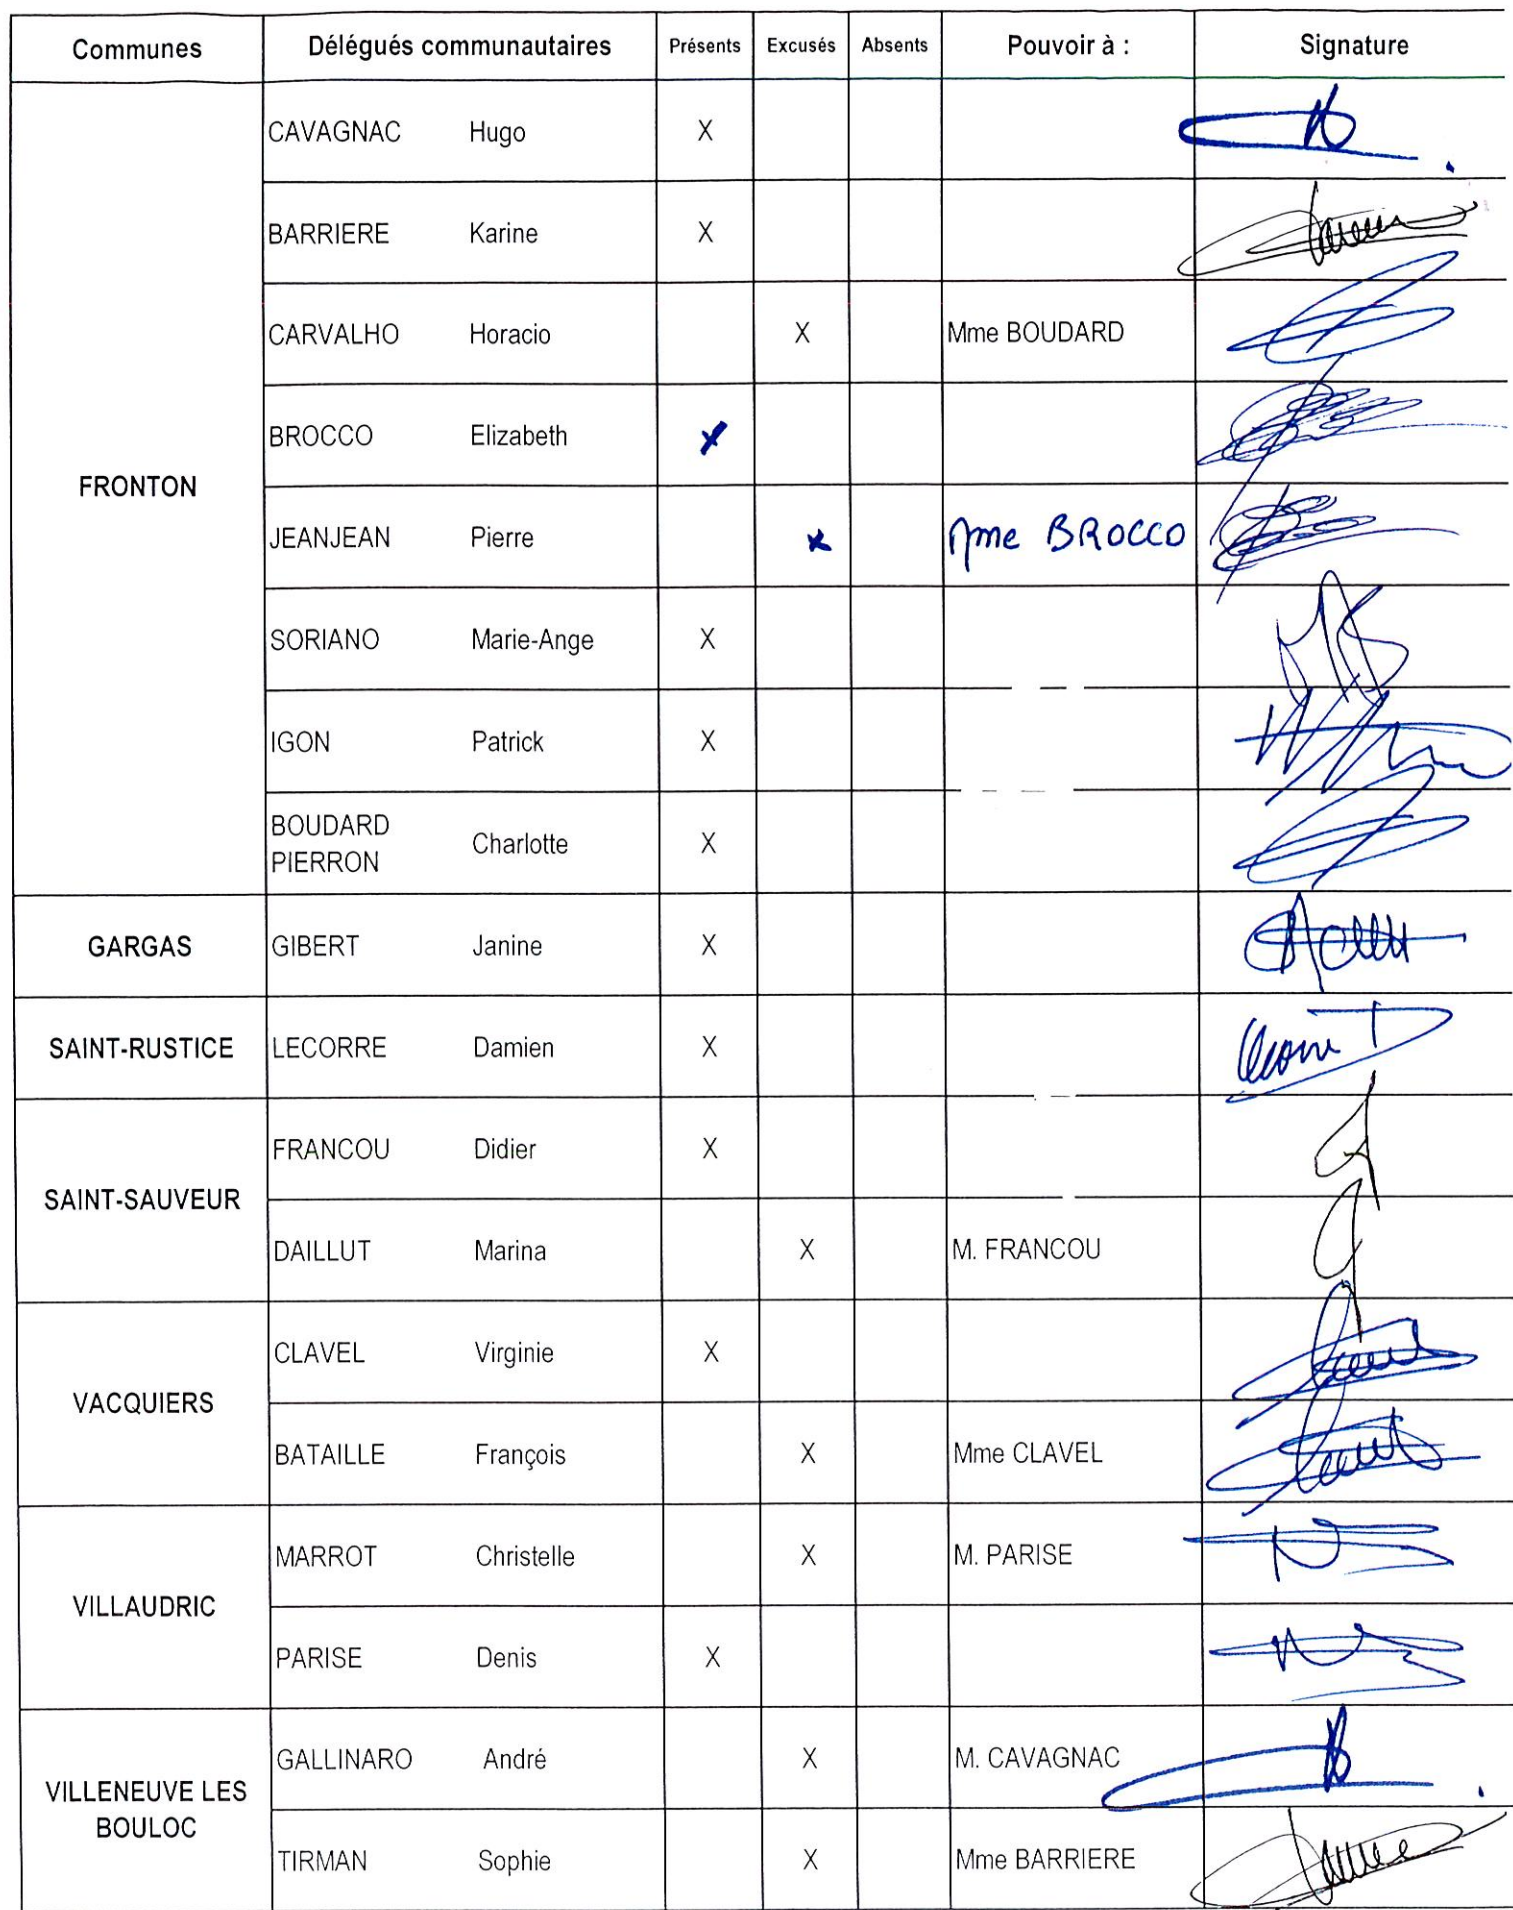 Communes Délégués communautaires Présents Excusés Absents Pouvoir à : Signature
FRONTON
CAVAGNAC Hugo X
BARRIERE Karine X
CARVALHO Horacio X Mme BOUDARD
BROCCO Elizabeth X
JEANJEAN Pierre X Mme BROCCO
SORIANO Marie-Ange X
IGON Patrick X
BOUDARD
PIERRON Charlotte X
GARGAS GIBERT Janine X
SAINT-RUSTICE LECORRE Damien X
SAINT-SAUVEUR
FRANCOU Didier X
DAILLUT Marina X M. FRANCOU
VACQUIERS
CLAVEL Virginie X
BATAILLE François X Mme CLAVEL
VILLAUDRIC
MARROT Christelle X M. PARISE
PARISE Denis X
VILLENEUVE LES
BOULOC
GALLINARO André X M. CAVAGNAC
TIRMAN Sophie X Mme BARRIERE